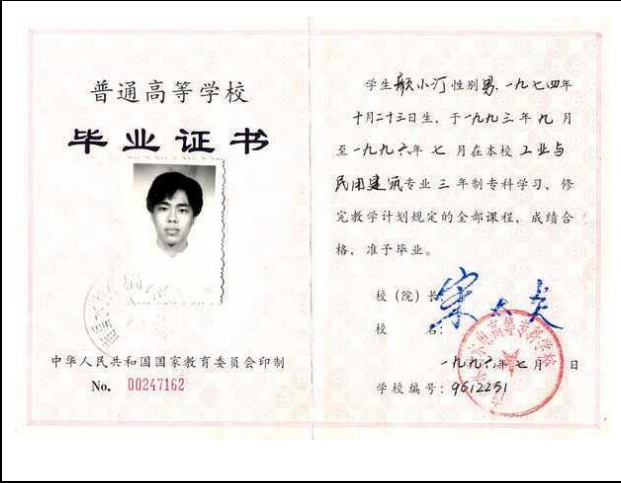 普通高等学校
毕业证书
中华人民共和国国家教育委员会印制
No. 00247162
学生 小汀 性别男,一九七四年
十月二十三日生,于一九九三年九月
至一九九六年七月在本校工业与
民用建筑专业三年制专科学习,修
完教学计划规定的全部课程,成绩合
格,准予毕业。
校(院)长
校 名:
高等专科学校
一九九六年七月 日
学校编号:9612251